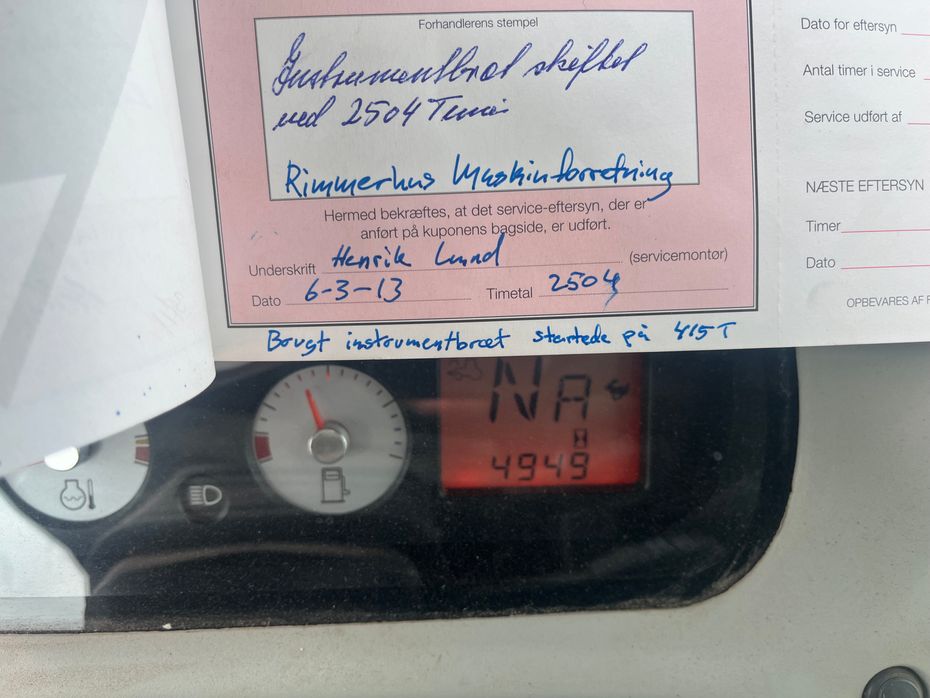 Forhandlerens stempel
Instrumentbræt skiftet
ved 2504 Timer
Rimmerhus Maskinforretning
Hermed bekræftes, at det service-eftersyn, der er
anført på kuponens bagside, er udført.
Underskrift Henrik Lund (servicemontør)
Dato 6-3-13 Timetal 2504
Brugt instrumentbræt startede på 415 T
Dato for eftersyn
Antal timer i service
Service udført af
NÆSTE EFTERSYN
Timer
Dato
OPBEVARES AF
NA
4949